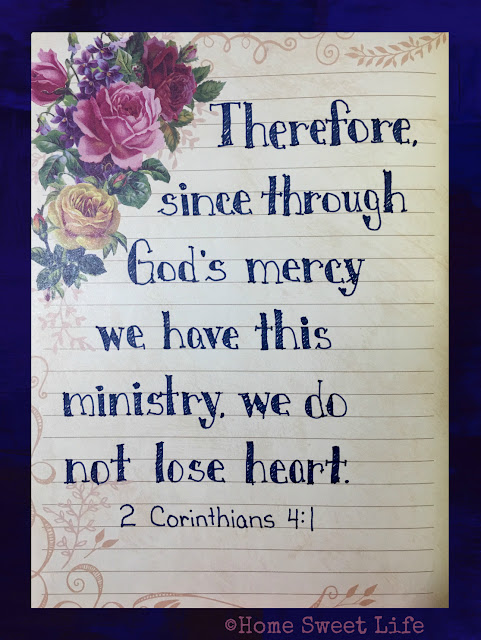 Therefore,
since through
God's mercy
we have this
ministry, we do
not lose heart.
2 Corinthians 4:1
©Home Sweet Life